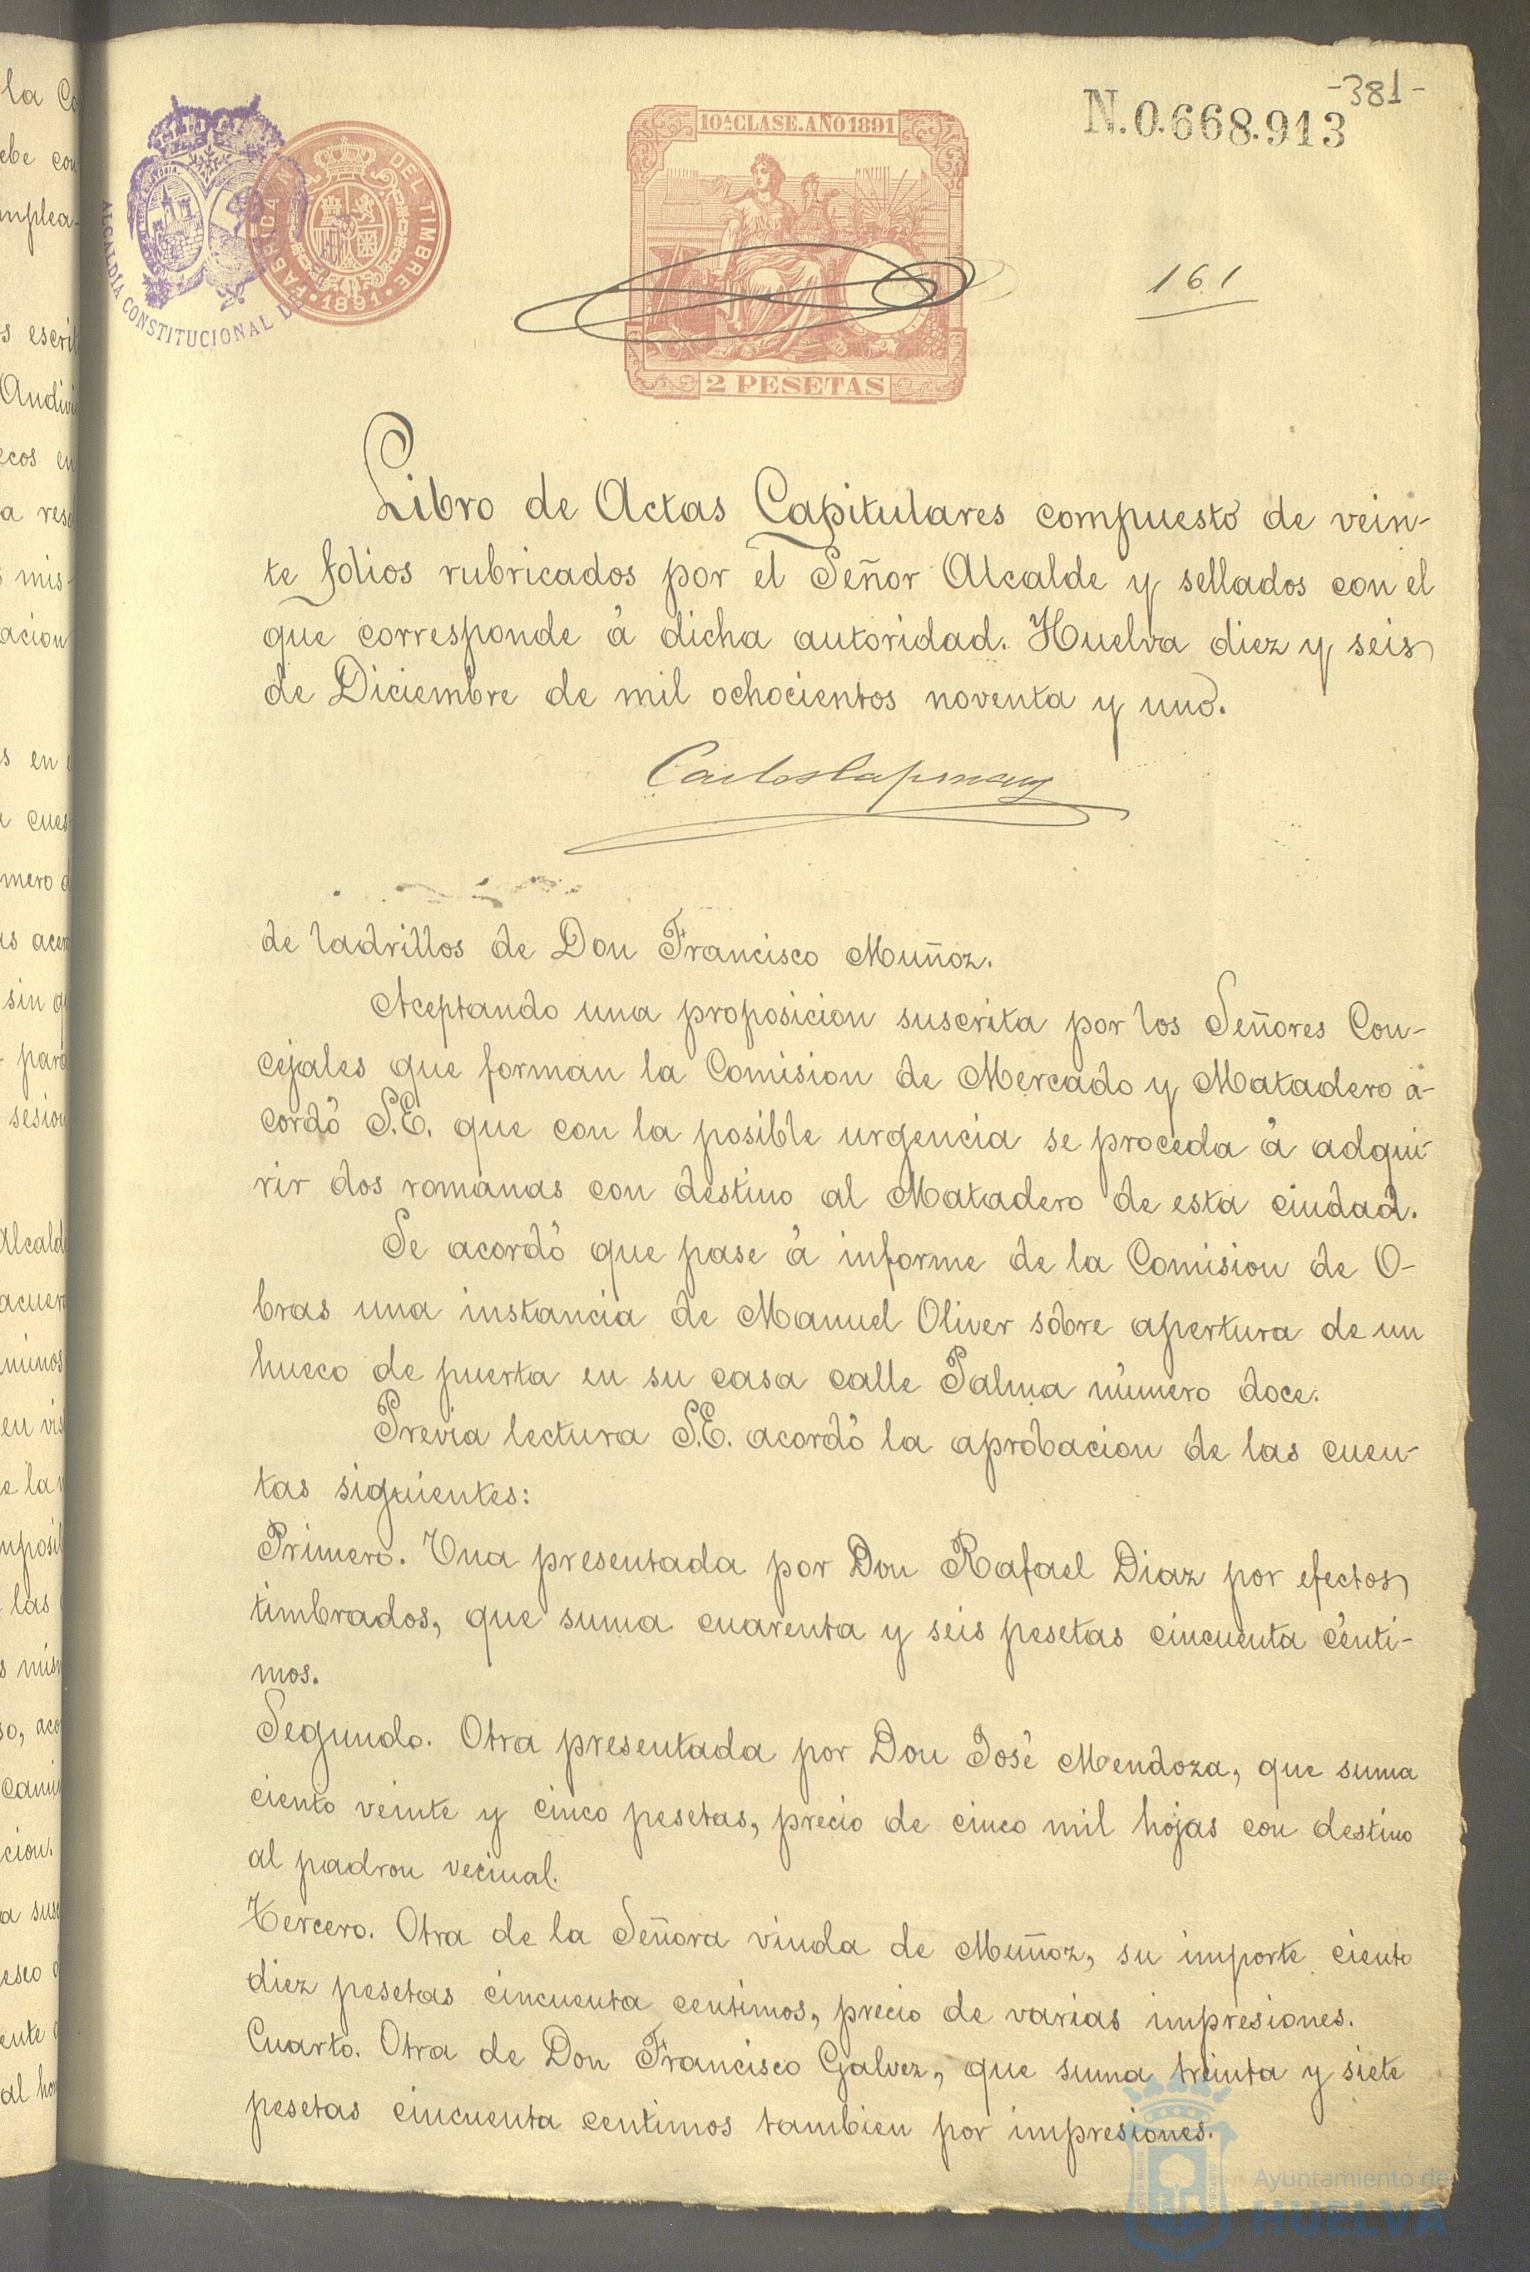 -381-
N.0.668.913
10ª CLASE. AÑO 1891
FABRICA NAL DEL TIMBRE
· 1891 ·
ALCALDÍA CONSTITUCIONAL DE
161
2 PESETAS
Libro de Actas Capitulares compuesto de vein-
te folios rubricados por el Señor Alcalde y sellados con el
que corresponde á dicha autoridad. Huelva diez y seis
de Diciembre de mil ochocientos noventa y uno.
Carlos
de ladrillos de Don Francisco Muñoz.
Aceptando una proposicion suscrita por los Señores Con-
cejales que forman la Comision de Mercado y Matadero a-
cordó S.E. que con la posible urgencia se proceda á adqui-
rir dos romanas con destino al Matadero de esta ciudad.
Se acordó que pase á informe de la Comision de O-
bras una instancia de Manuel Oliver sobre apertura de un
hueco de puerta en su casa calle Palma número doce.
Previa lectura S.E. acordó la aprobacion de las cuen-
tas siguientes:
Primero. Una presentada por Don Rafael Diaz por efectos
timbrados, que suma cuarenta y seis pesetas cincuenta cénti-
mos.
Segundo. Otra presentada por Don José Mendoza, que suma
ciento veinte y cinco pesetas, precio de cinco mil hojas con destino
al padron vecinal.
Tercero. Otra de la Señora viuda de Muñoz, su importe ciento
diez pesetas cincuenta centimos, precio de varias impresiones.
Cuarto. Otra de Don Francisco Galvez, que suma treinta y siete
pesetas cincuenta centimos tambien por impresiones.
Ayuntamiento de
HUELVA